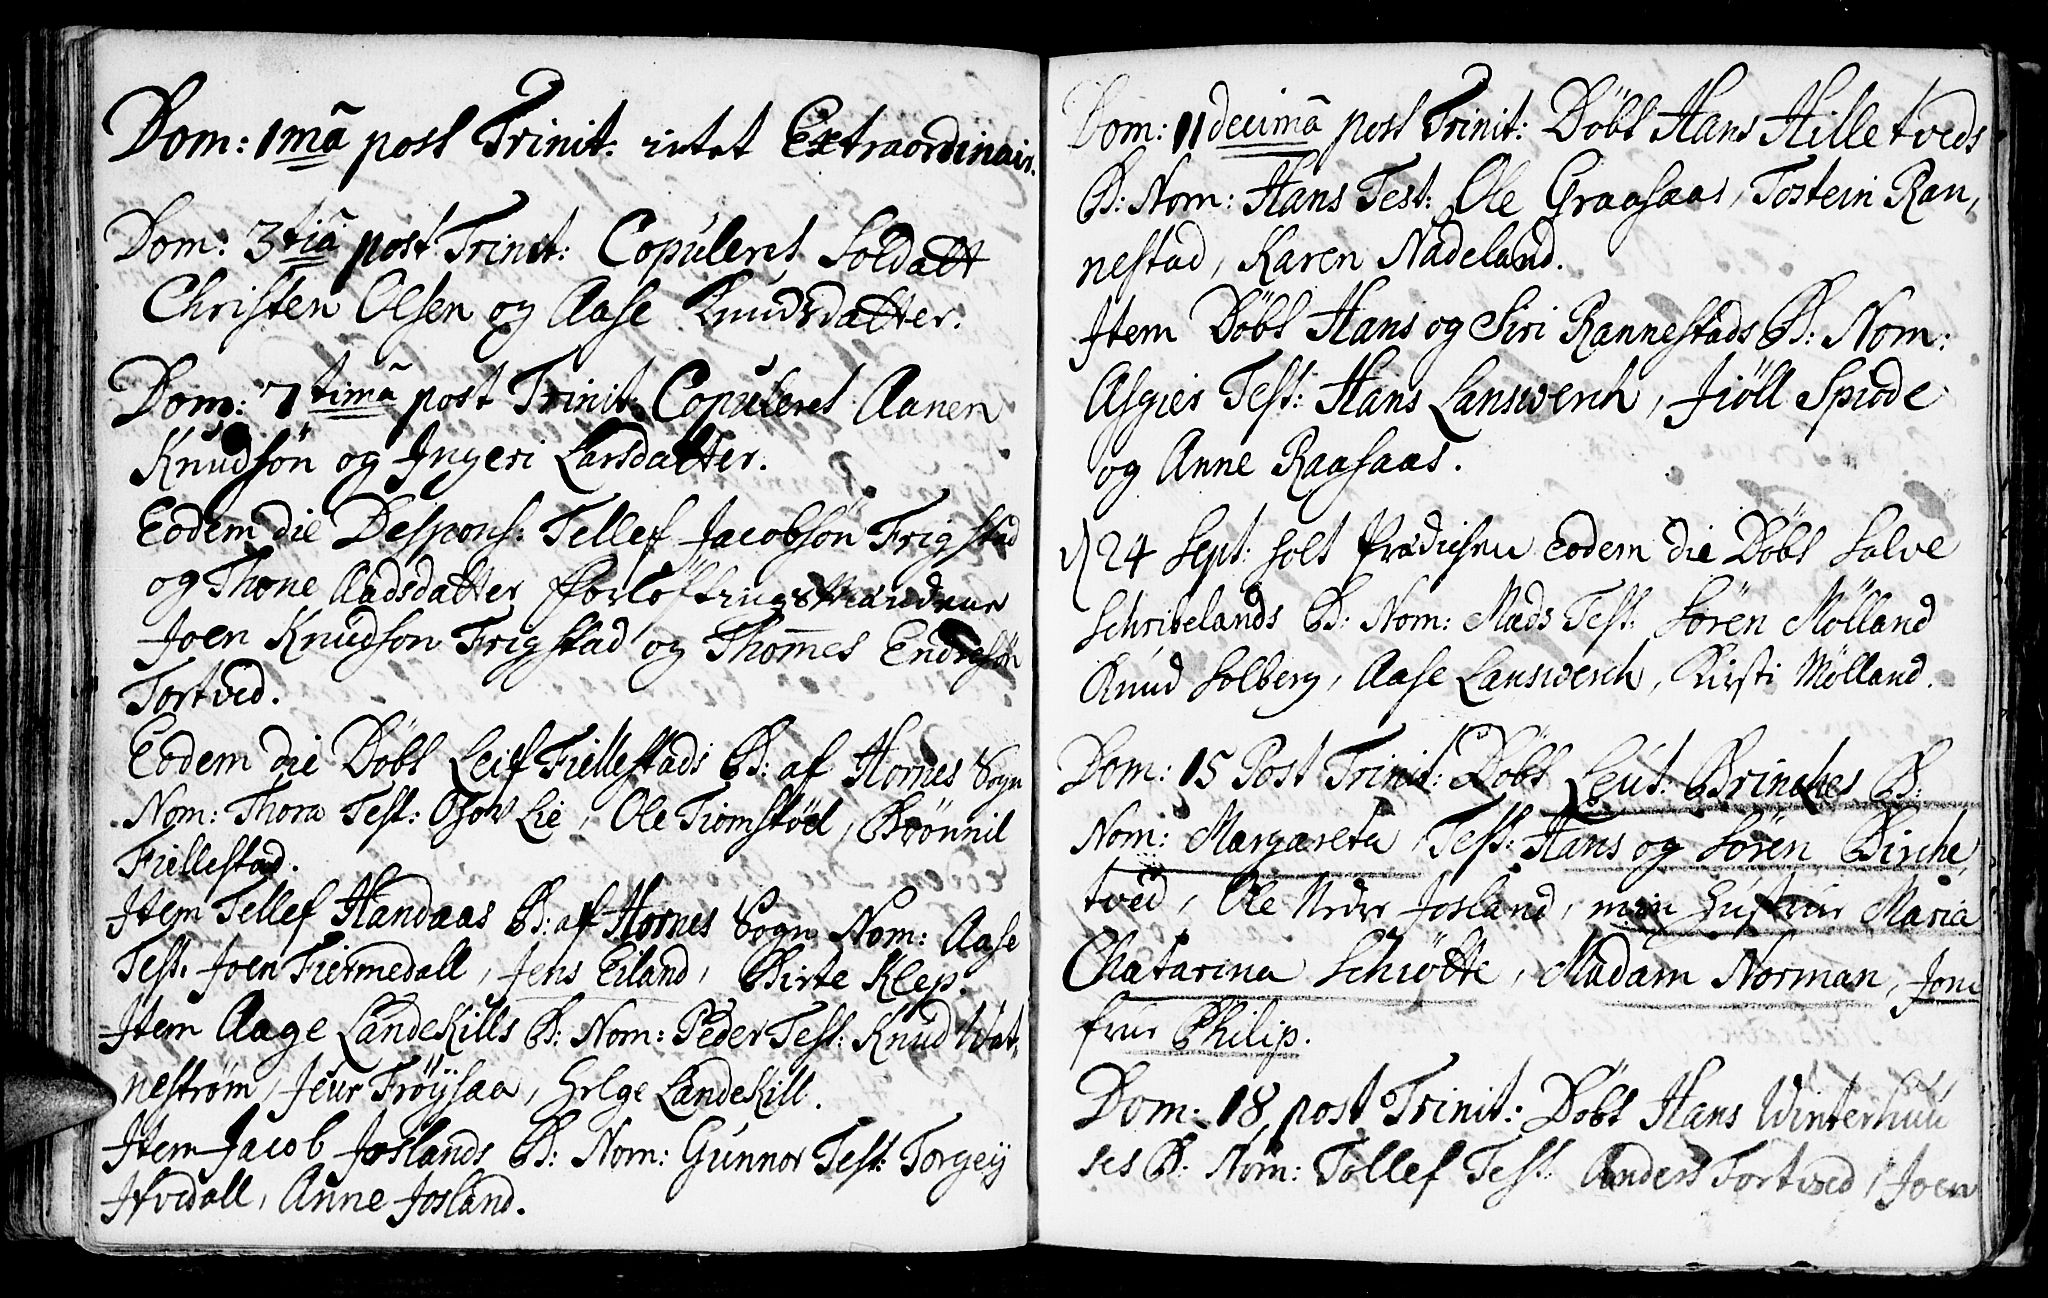 Dom: 1mã post Trinit: intet Extraordinair.
Dom: 3tiã post Trinit: Copuleret Soldatt
Christen Olsen og Aase Knudsdatter.
Dom: 7timã post Trinit: Copuleret Aanen
Knudsøn og Ingeri Larsdatter.
Eodem die Despons: Tellef Jacobsøn Frigstad
og Thone Aadsdatter Forløftningsmændene
Joen Knudsøn Frigstad og Thom̄es Endresøn
Tortved.
Eodem die Döbt Leif Fiellestads B: af Hornes Sogn
Nom: Thora Test: Osow Lie, Ole Tiomstöel, Brönnil
Fiellestad.
Item Tellef Handaas B: af Hornes Sogn Nom: Aase
Test. Joen Fiermedall, Jens Eiland, Birte Klep.
Item Aage Landekills B: Nom: Peder Test: Knud Wat,
nestrøm, Jeur Frøysaa, Helge Landekill.
Item Jacob Joslands B: Nom: Gunnor Test: Torgey
Ifvedall, Anne Josland.
Dom: 11decimã post Trinit: Döbt Hans Hilletveds
B: Nom: Hans Test: Ole Graasaas, Tostein Ran,
nestad, Karen Nadeland.
Item Döbt Hans og Siri Rannestads B: Nom:
Asgier Test: Hans Lanswerch, Fiöll Spiode
og Anne Raasaas.
24 Sept: holt Prædichen Eodem die Döbt Salve
Schribelands B: Nom: Mads Test: Sören Mölland
Knud Solberg, Aase Lanswerch, Kirsti Mölland.
Dom: 15 Post Trinit: Döbt Leut: Brinches B:
Nom: Margareta Test: Hans og Sören Birche,
tved, Ole Nedre Josland, min Hustrue Maria
Chatarina Schiøtte, Madam Norman, Jom
frue Philip.
Dom: 18 post Trinit: Döbt Hans Winterhuu
ses B: Nom: Tollef Test: Anders Tortved, Joen